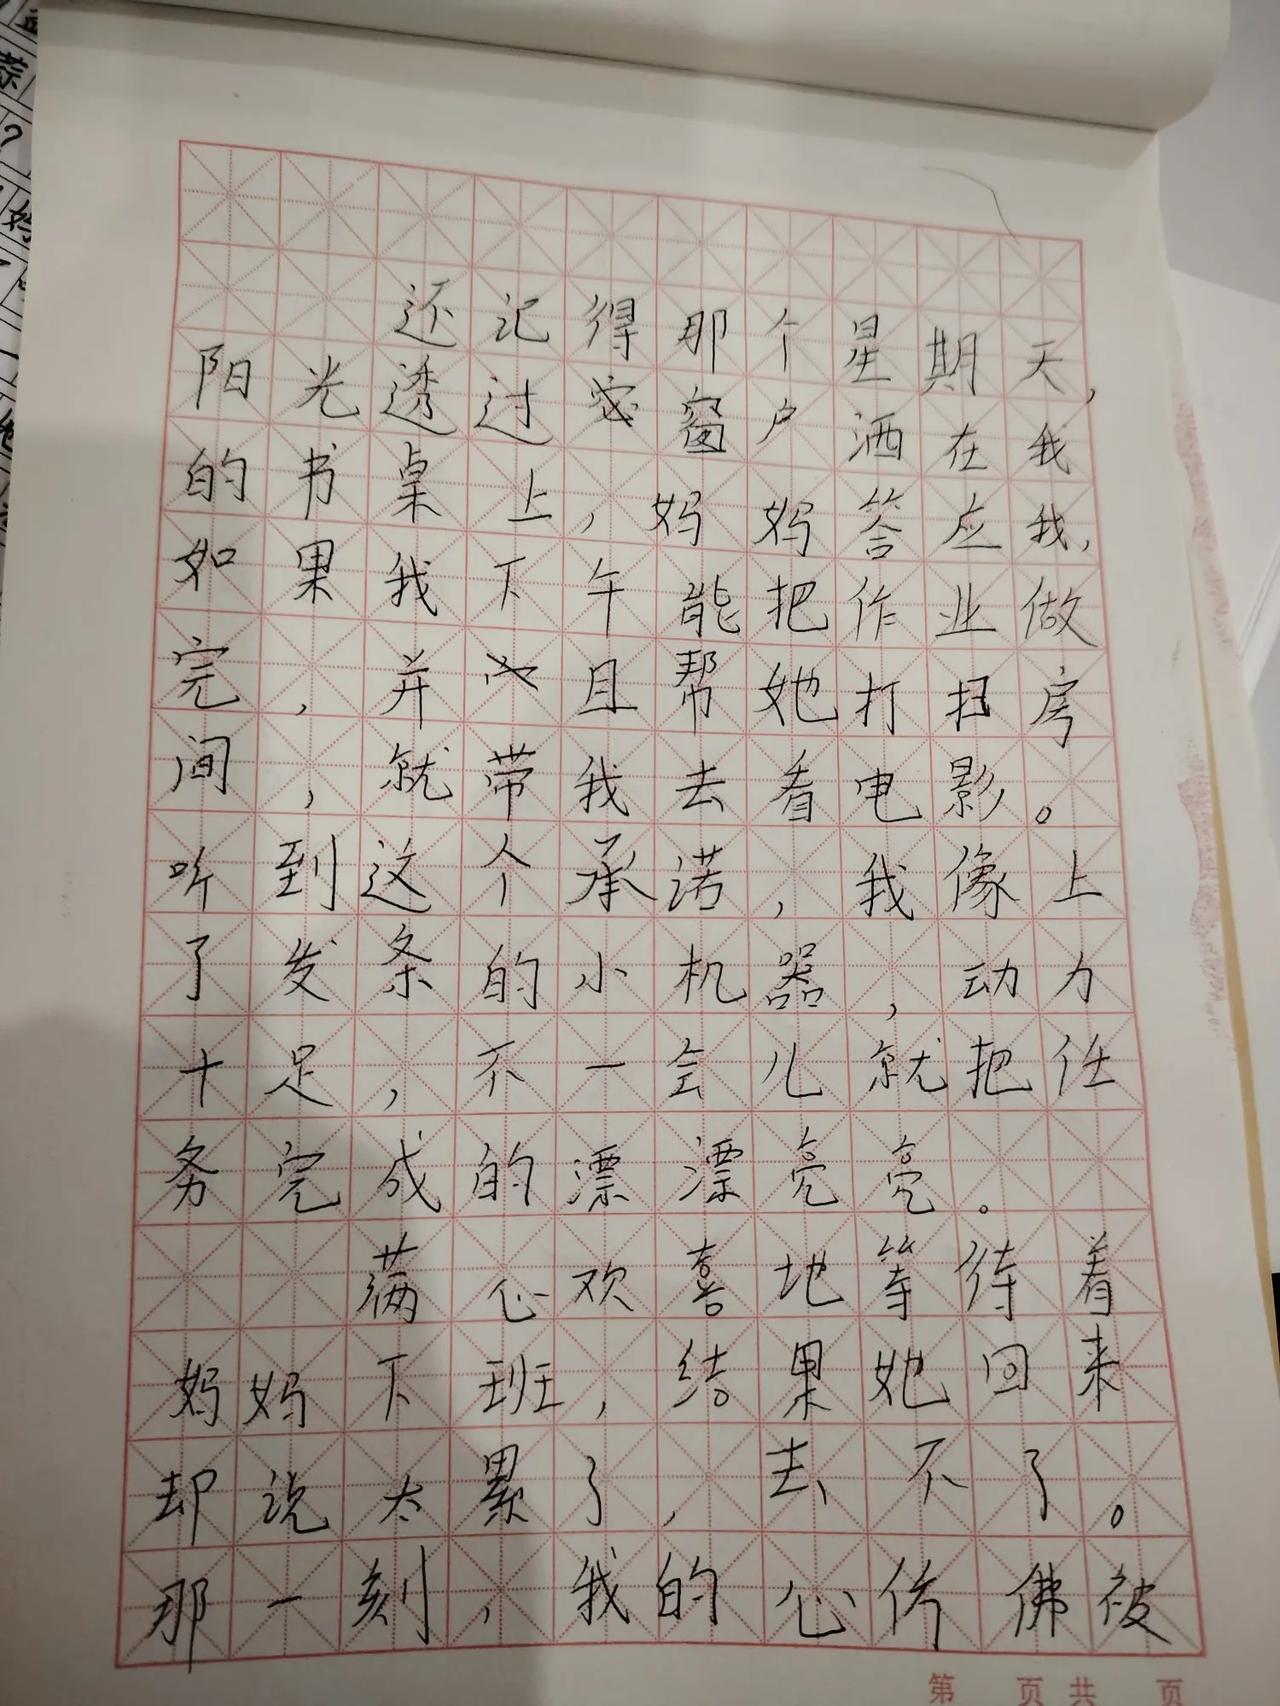 还记得那个星期天，
阳光透过窗户洒在我
的书桌上，妈妈答应我，
如果我下午能把作业做
完，并且帮她打扫房
间，就带我去看电影。
听到这个承诺，我像上
了发条的小机器，动力
十足，不一会儿就把任
务完成的漂漂亮亮。
满心欢喜地等待着
妈妈下班，结果她回来
却说太累了，去不了。
那一刻，我的心仿佛被
第 页 共 页